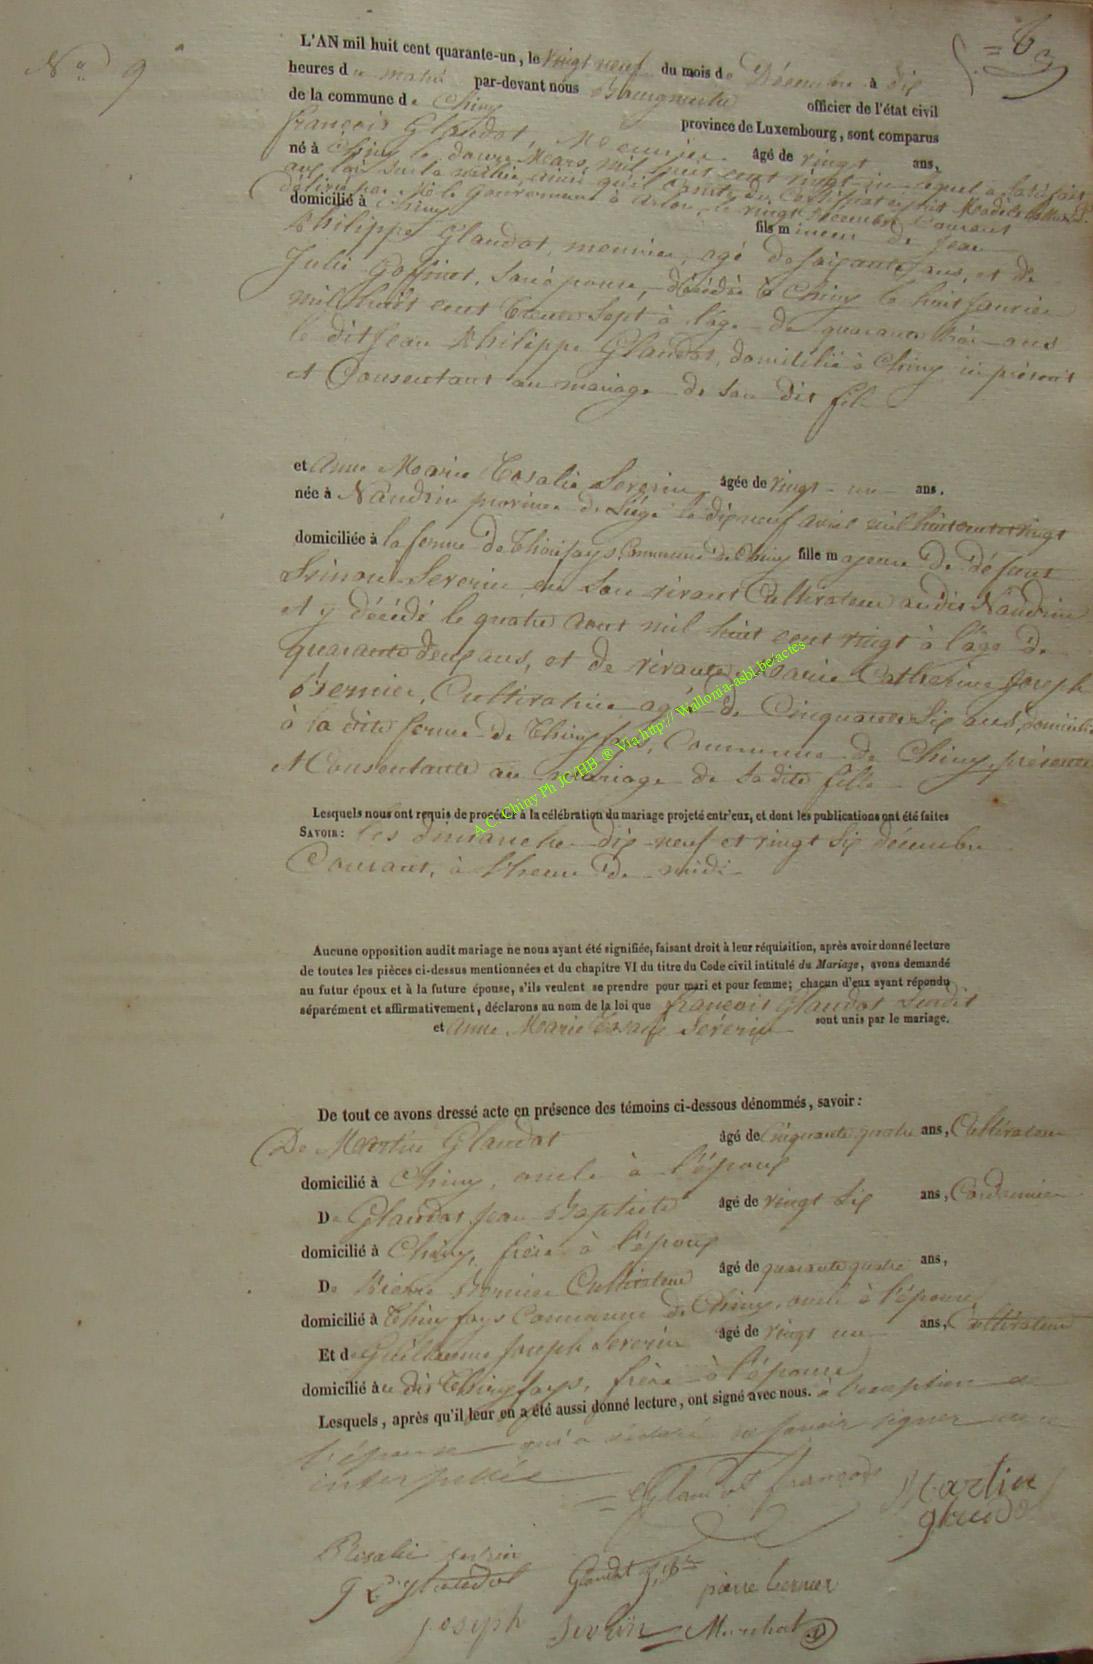 N° 9
63
L'AN mil huit cent quarante-un, le vingt neuf du mois de Décembre à dix
heures du matin par-devant nous Bourgmestre officier de l'état civil
de la commune de Chiny province de Luxembourg, sont comparus
François Glaudot, Meunier âgé de vingt ans,
né à Chiny le douze Mars mil huit cent vingt un lequel a satisfait
aux lois sur la milice, ainsi qu'il conste du Certificat
délivré par Mr le Gouverneur à Arlon, le vingt décembre Courant
domicilié à Chiny fils mineur de Jean
Philippe Glaudot, meunier, agé de soixante ans, et de
Julie Goffinet, son épouse, décédée à Chiny le huit Janvier
mil huit cent trente sept à l'âge de quarante trois ans
le dit Jean Philippe Glaudot, domicilié à Chiny ici présent
et Consentant au mariage de son dit fils
et Anne Marie Rosalie Severin âgée de vingt un ans.
née à Nandrin province de Liége le dix neuf avril mil huit cent vingt
domiciliée à la ferme de Chinyfays, Commune de Chiny fille majeure de défunt
Simon Severin en son vivant Cultivateur au dit Nandrin
et y décédé le quatre aout mil huit cent vingt à l'âge de
quarante deux ans, et de vivante Marie Catherine Joseph
Bernier, Cultivatrice agée de Cinquante six ans, domiciliée
à la dite ferme de Chinyfays, Commune de Chiny, présente
et Consentante au mariage de sa dite fille
Lesquels nous ont requis de procéder à la célébration du mariage projeté entr'eux, et dont les publications ont été faites
SAVOIR: les dimanche dix-neuf et vingt six décembre
Courant, à l'heure de midi
Aucune opposition audit mariage ne nous ayant été signifiée, faisant droit à leur réquisition, après avoir donné lecture
de toutes les pièces ci-dessus mentionnées et du chapitre VI du titre du Code civil intitulé du Mariage, avons demandé
au futur époux et à la future épouse, s'ils veulent se prendre pour mari et pour femme; chacun d'eux ayant répondu
séparément et affirmativement, déclarons au nom de la loi que françois Glaudot susdit
et Anne Marie Rosalie Séverin sont unis par le mariage.
De tout ce avons dressé acte en présence des témoins ci-dessous dénommés, savoir:
De Martin Glaudot âgé de Cinquante quatre ans, Cultivateur
domicilié à Chiny, oncle à l'époux
De Glaudot Jean Baptiste âgé de vingt six ans, Cordonnier
domicilié à Chiny, frère à l'époux
De Pierre Bernier Cultivateur âgé de quarante quatre ans,
domicilié à Chinyfays Commune de Chiny, oncle à l'épouse
Et de Guillaume Joseph Severin âgé de vingt un ans, Cultivateur
domicilié au dit Chinyfays, frère à l'épouse
Lesquels, après qu'il leur en a été aussi donné lecture, ont signé avec nous. à l'exception de
l'épouse qui a déclaré ne savoir signer
interpellée
Glaudot françois
Martin
glaudot
Rosalie
Glaudot J. Bte
pierre bernier
joseph Severin
Marechal
A.C. Chiny Ph JC/HB ® Via http://Wallonia-asbl.be/actes